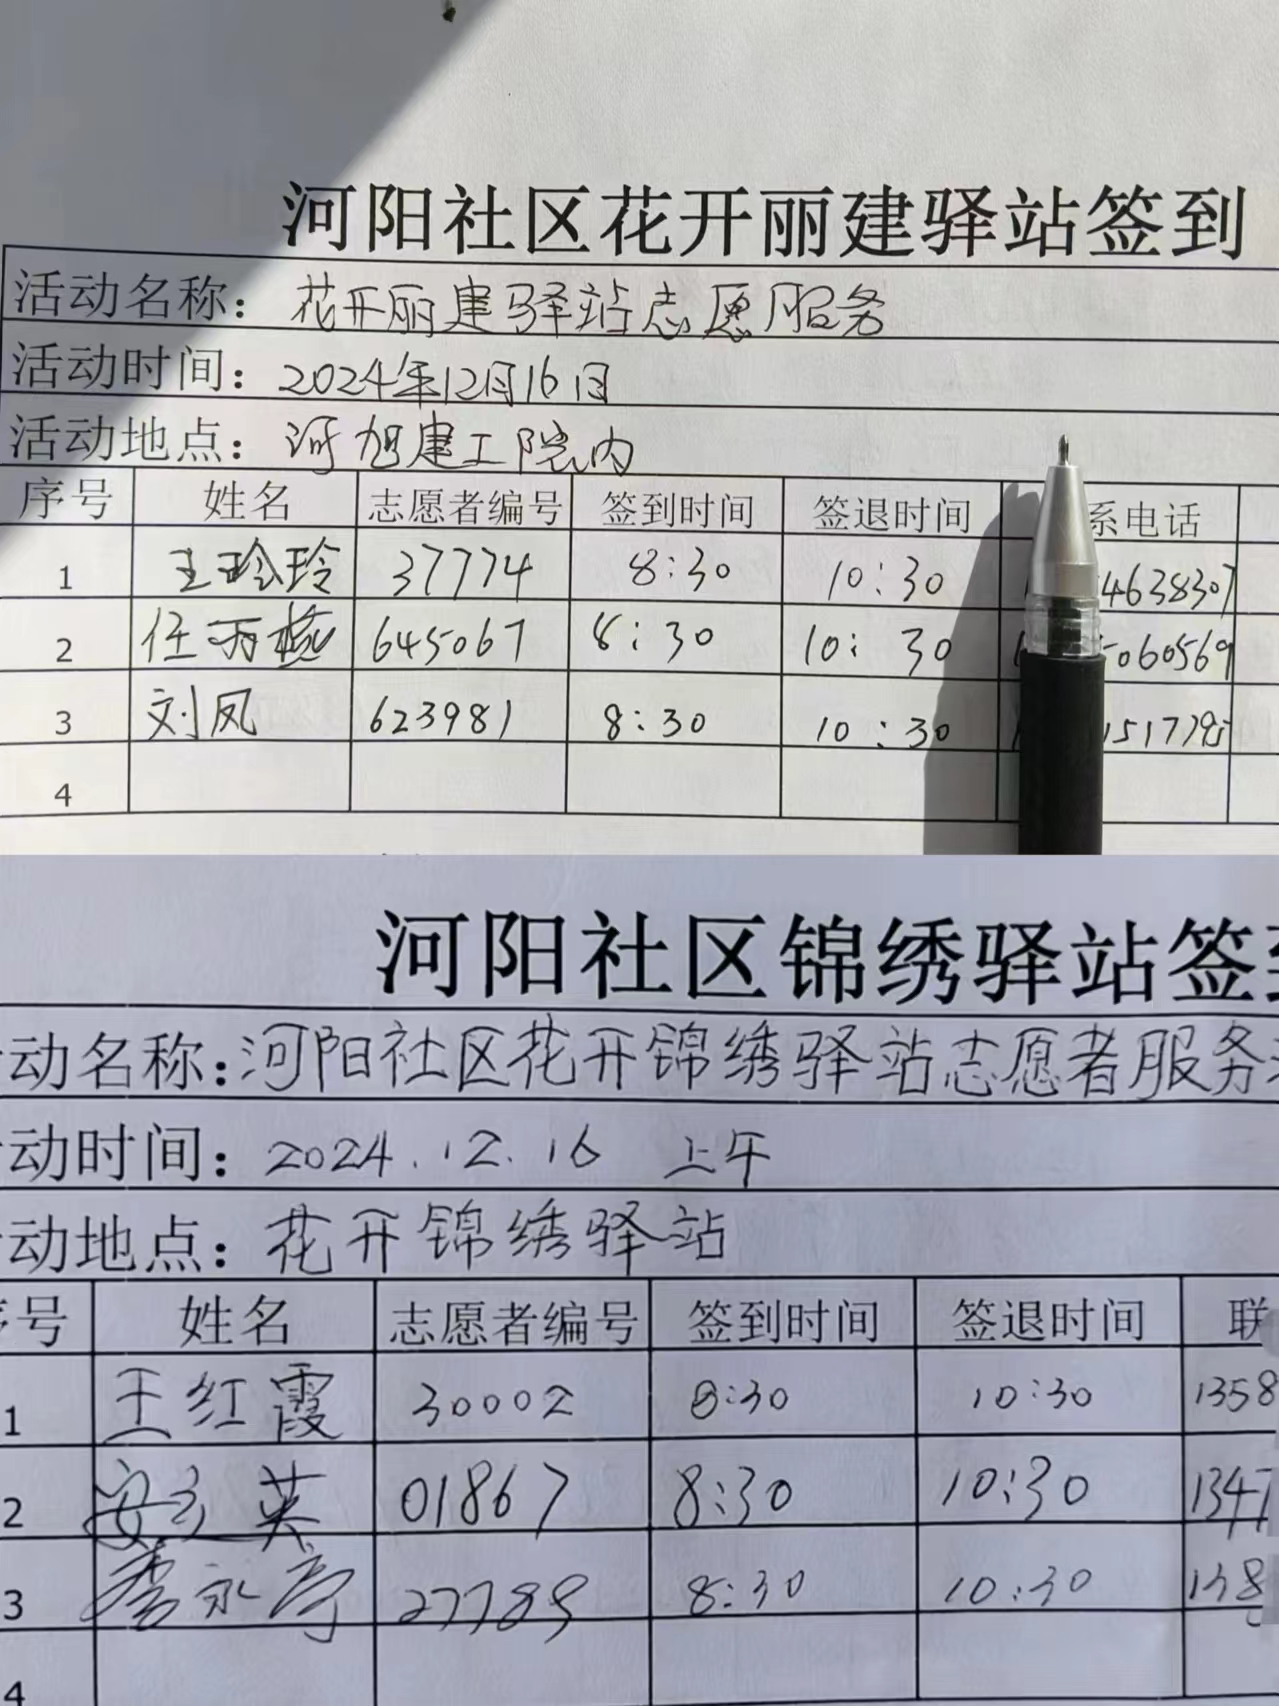 河阳社区花开丽建驿站签到
活动名称：花开丽建驿站志愿服务
活动时间：2024年12月16日
活动地点：河旭建工院内
序号 姓名 志愿者编号 签到时间 签退时间 系电话
1 王玲玲 37774 8:30 10:30 4638307
2 任丽 645067 8:30 10:30 060569
3 刘凤 623981 8:30 10:30
4
河阳社区锦绣驿站签
动名称：河阳社区花开锦绣驿站志愿者服务
动时间：2024.12.16 上午
动地点：花开锦绣驿站
号 姓名 志愿者编号 签到时间 签退时间 联
1 王红霞 30002 8:30 10:30 1358
2 安 英 01867 8:30 10:30 1347
3 李永 27789 8:30 10:30 138
4